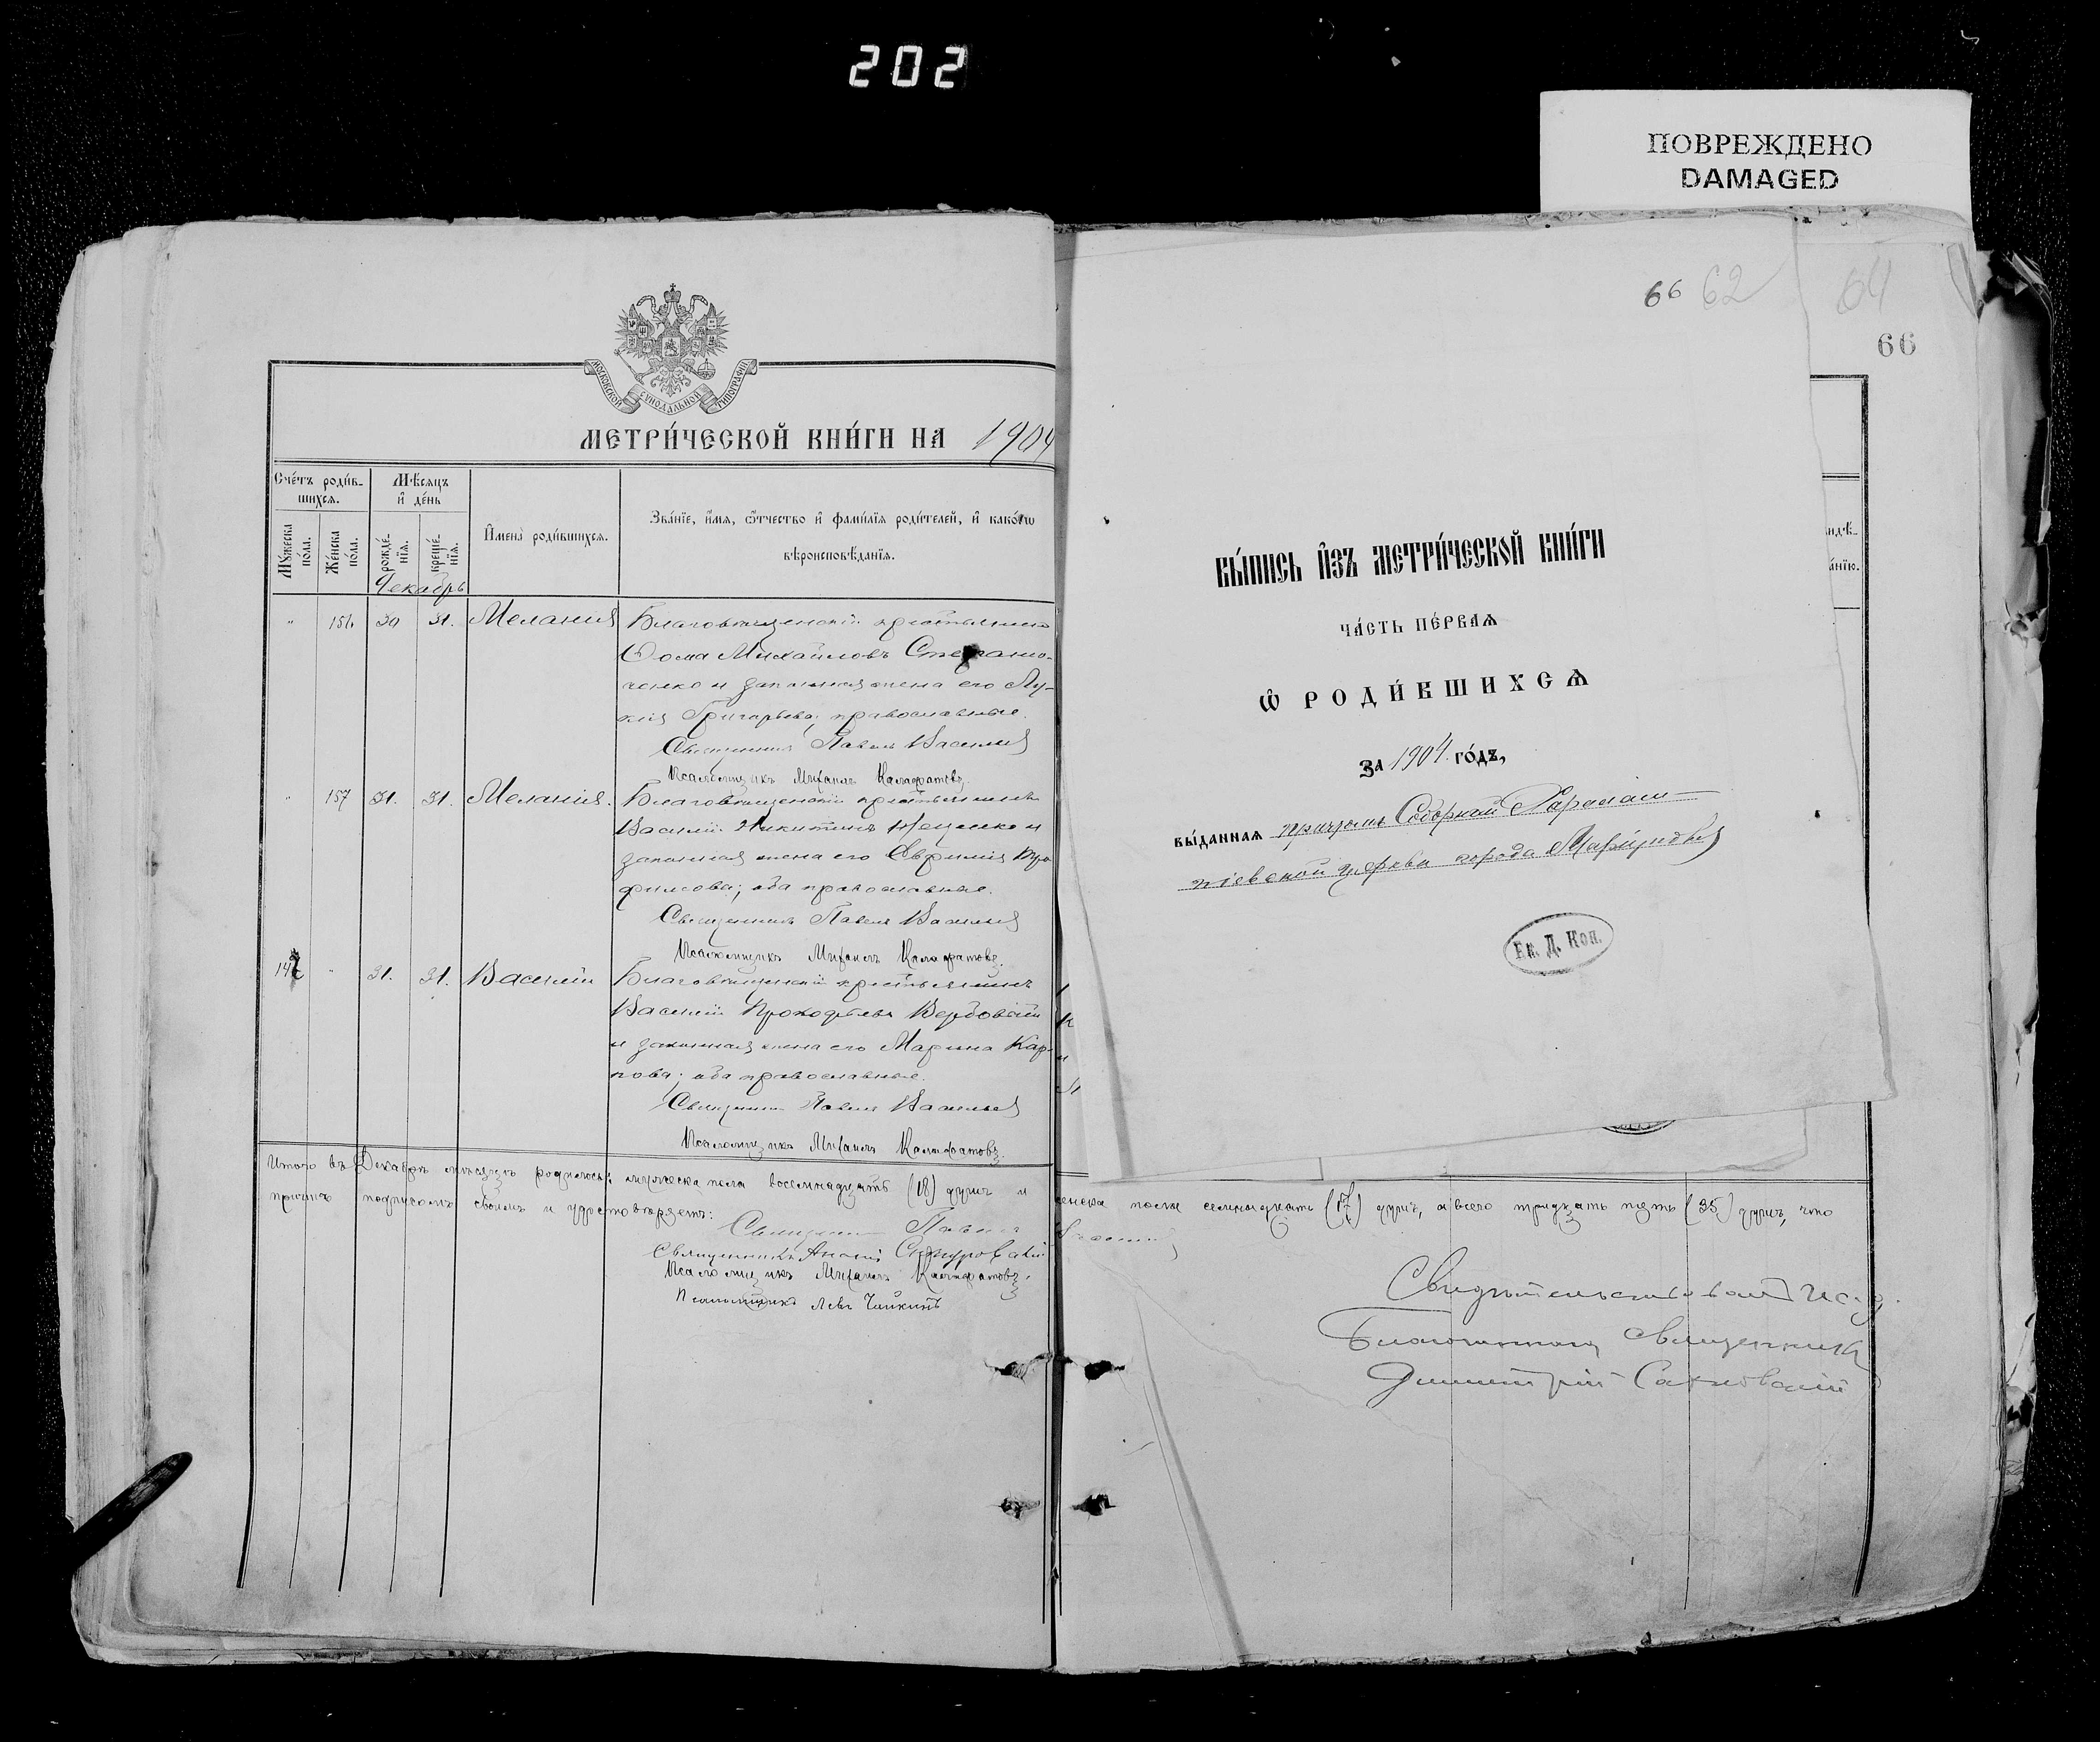 202
ПОВРЕЖДЕНО
DAMAGED
МОСКОВСКОЙ СУНОДАЛЬНОЙ ТИПОГРАФІИ
МЕТРИ́ЧЕСКОЙ КНИ́ГИ НА 1904
Сче́тъ роди́в-
шихся.
Мѣ́сяцъ
и҆ де́нь
Мꙋ́жеска
по́ла.
Же́нска
по́ла.
рожде́-
нїя.
креще́-
нїя.
И҆мена̀ роди́вшихся.
Зва́нїе, и҆́мя, ѻ҆́тчество и҆ фами́лїя роди́телей, и҆ како́гѡ
вѣроисповѣ́данїя.
Декабрь
" 30 31. Меланія Благовѣщенскій крестьянинъ
Ѳома Михайловъ Стефано-
ченко и законная жена его Лу-
кія Григорьева; православные.
Священникъ Павелъ Василій
Псаломщикъ Михаилъ Калафатовъ.
" 157 31. 31. Меланія. Благовѣщенскій крестьянинъ
Василій Никитинъ и
законная жена его Евфимія Тро-
фимова; оба православные.
Священникъ Павелъ Василій
Псаломщикъ Михаилъ Калафатовъ.
" 31. 31. Василій Благовѣщенскій крестьянинъ
Василій Прокофьевъ Вербовый
и законная жена его Марина Кар-
пова; оба православные.
Священникъ Павелъ Василій
Псаломщикъ Михаилъ Калафатовъ.
Итого въ Декабрѣ мѣсяцѣ родилось: мужеска пола восемнадцать (18) душъ и женска пола семнадцать (17) душъ, а всего тридцать пять (35) душъ, что
причтъ подписомъ своимъ и удостовѣряетъ:
Священникъ Павелъ Василій
Священникъ
Псаломщикъ Михаилъ Калафатовъ.
Псаломщикъ Левъ Чайкинъ
66 62
64
66
ВЫ́ПИСЬ И҆ЗЪ МЕТРИ́ЧЕСКОЙ КНИ́ГИ
ЧА́СТЬ ПЕ́РВАЯ
Ѡ҆ РОДИ́ВШИХСЯ
ЗА 1904 ГО́ДЪ,
ВЫ́ДАННАЯ причтомъ Соборной Харалам-
піевской церкви города Маріуполя
Ек. Д. Кон.
Свидѣтельствовалъ И. д.
Благочиннаго священникъ
Димитрій